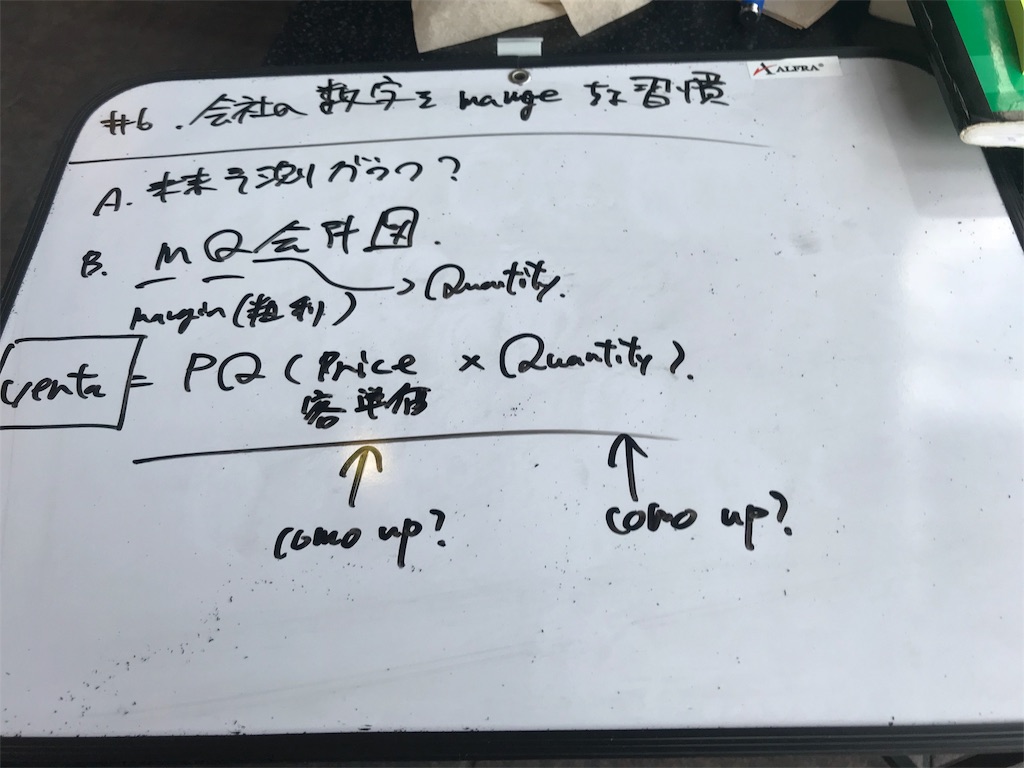 ALFRA®
#6. 会社の数字を mange する習慣
A. 未来を測がうつ?
B. MQ会計図.
margin(粗利) → Quantity.
venta = PQ (Price × Quantity).
客単価
↑ ↑
como up? como up?